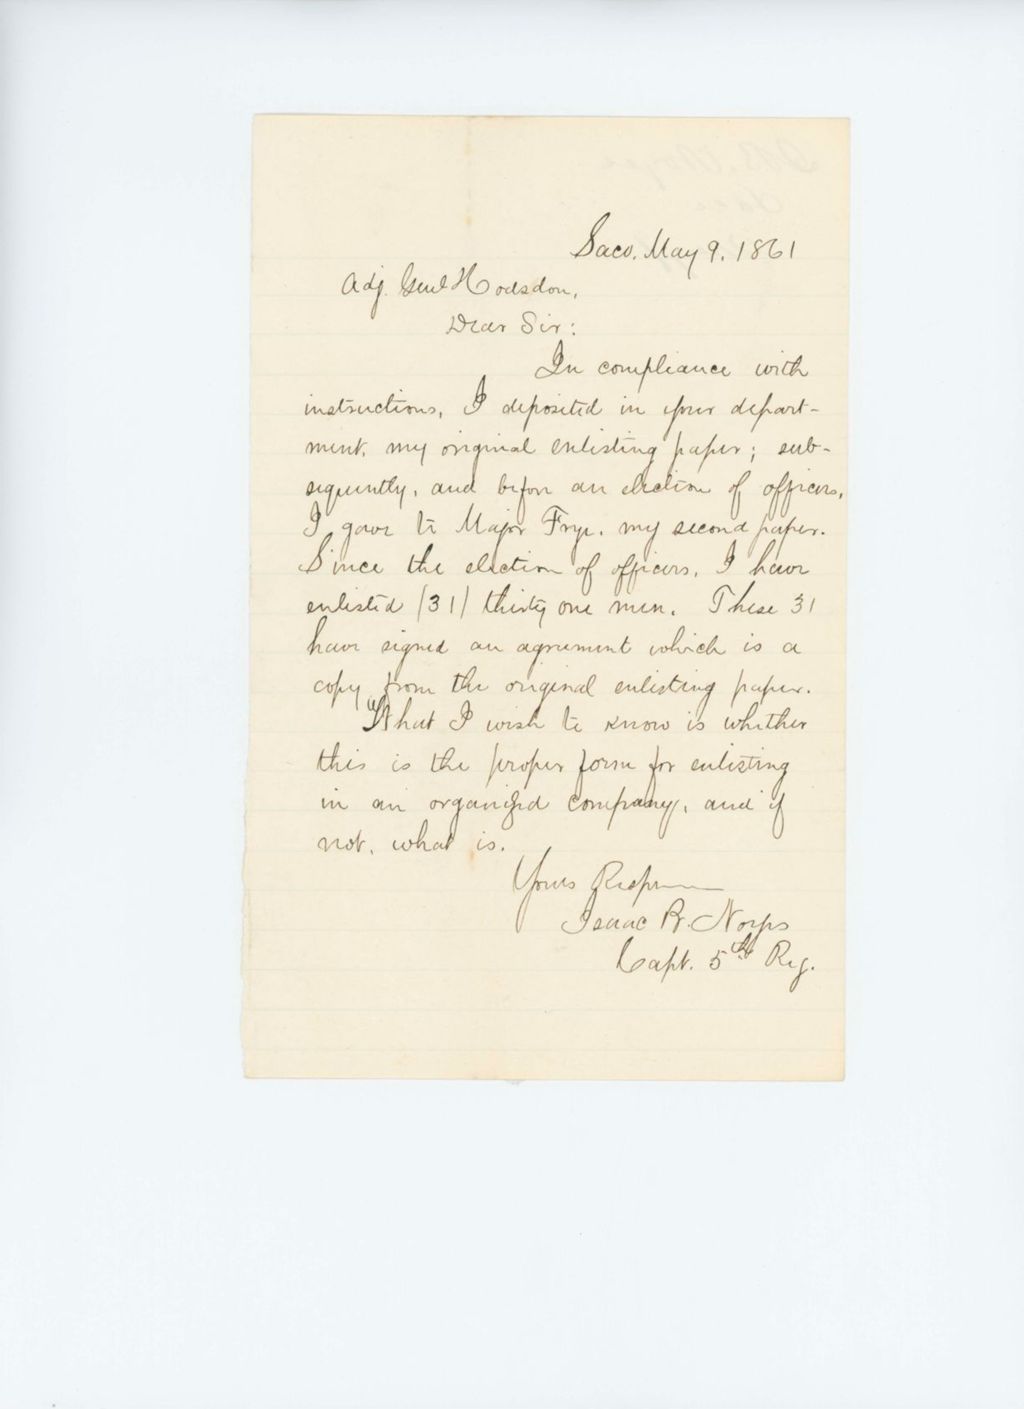 Saco, May 9, 1861
Adj. Genl Hodsdon,
Dear Sir:
In compliance with
instructions, I deposited in your depart-
ment, my original enlisting paper; sub-
sequently, and before an election of officers,
I gave to Major Frye, my second paper.
Since the election of officers, I have
enlisted (31) thirty one men. These 31
have signed an agreement which is a
copy from the original enlisting paper.
What I wish to know is whether
this is the proper form for enlisting
in an organized company, and if
not, what is.
Yours
Isaac B. Noyes
Capt. 5th Reg.